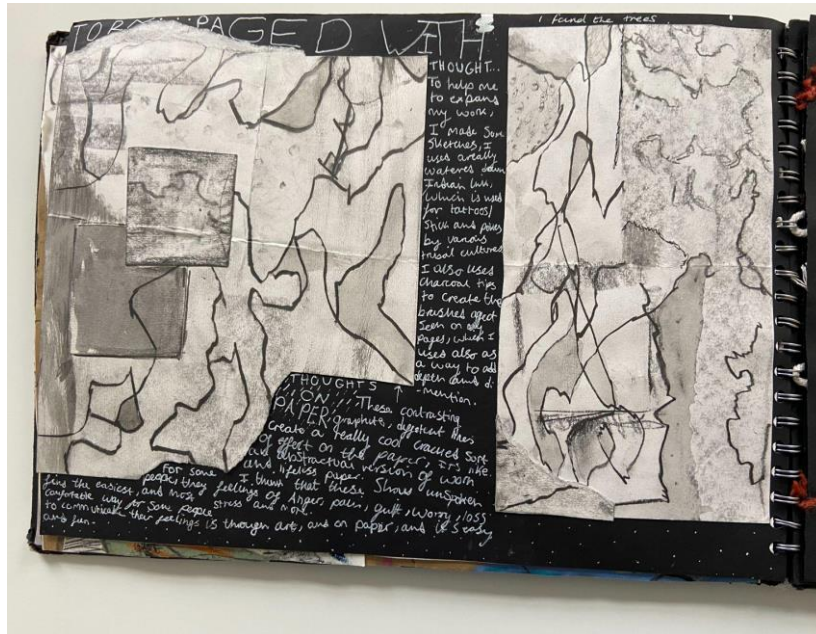 TORN,,, PAGED WITH
THOUGHT...
To help me
to expand
my work,
I made some
sketches, I
uses a really
watered down
Indian Ink,
which is used
for tattoos/
stick and pokes
by various
tribal cultures
I also uses
charcoal tips
to create the
brushes affect
seen on my
pages, which I
used also as
a way to add
depth and di
-mention.
THOUGHTS
ON,,,
PAPER,,, These contrasting
graphite, different lines
create a really cool cracked sort
of effect on the paper, its like
and abstractual version of worn
and lifeless paper.
I think that these shows unspoken
feelings of Anger, pain, guilt, worry, loss
stress and more.
For some
people they
find the easiest, and most
comfortable way for some people
to communicate their feelings is through art, and on paper, and it's easy
and fun.
I found the trees